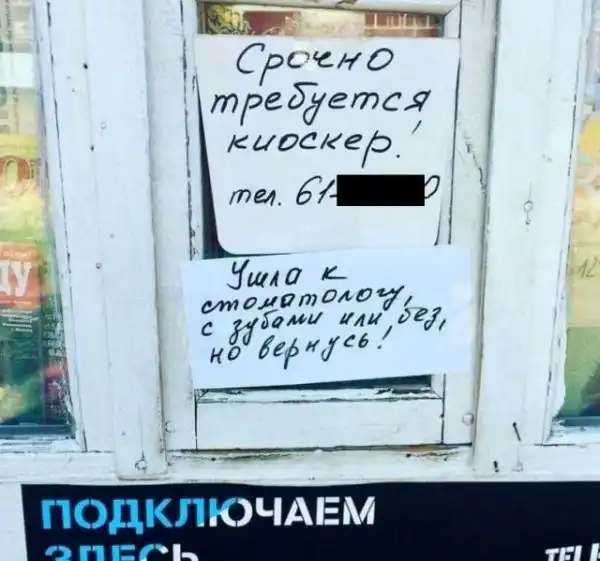 Срочно
требуется
киоскер!
тел. 61- 0
Ушла к
стоматологу,
с зубами или без,
но вернусь!
ПОДКЛЮЧАЕМ
ЗДЕСЬ